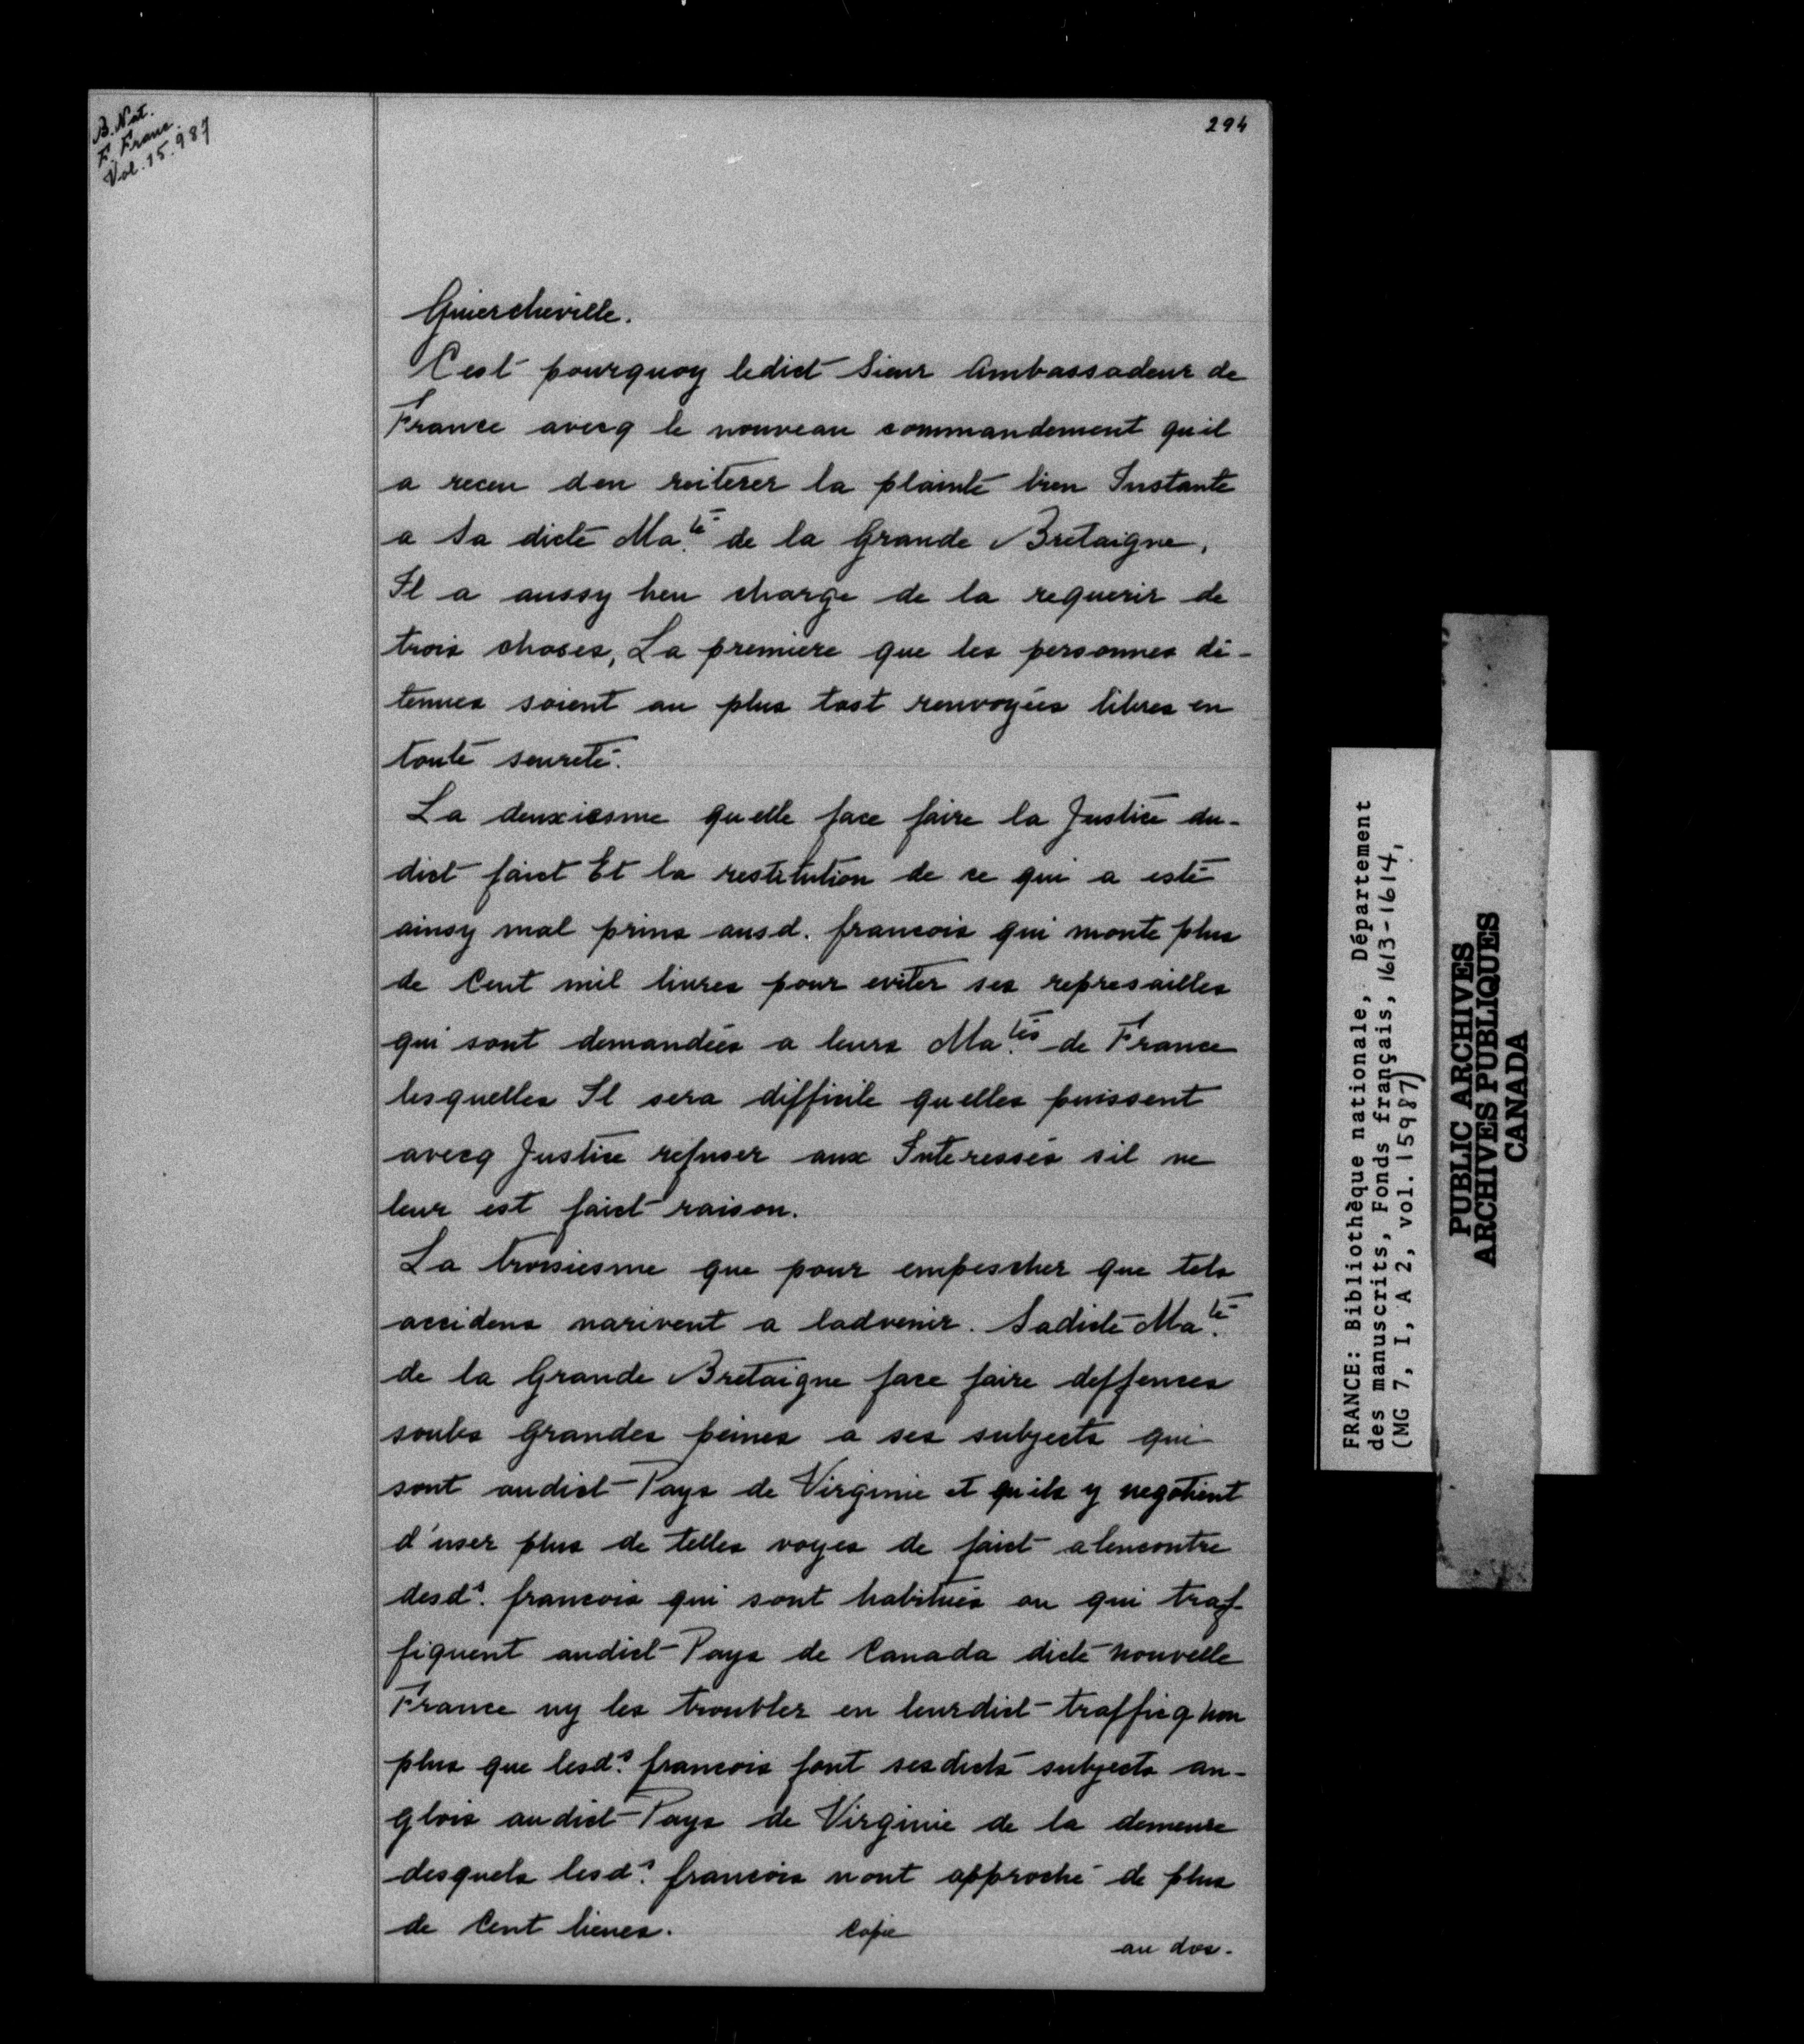 B. Nat.
F. Franc.
Vol. 15.987
294
Guiercheville.
C'est pourquoy ledict Sieur Ambassadeur de
France avecq le nouveau commandement quil
a receu den reiterer la plainte bien Instante
a Sa dicte Ma.té de la Grande Bretaigne,
Il a aussy heu charge de la requerir de
trois choses, La premiere que les personnes dé-
tenues soient au plus tost renvoyées libres en
toute seureté.
La deuxiesme quelle face faire la Justice du-
dict faict Et la restitution de ce qui a esté
ainsy mal prins ausd. francois qui monte plus
de Cent mil livres pour eviter ses represailles
qui sont demandées a leurs Ma.tés de France
lesquelles Il sera difficile quelles puissent
avecq Justice refuser aux Interessés sil ne
leur est faict raison.
La troisiesme que pour empescher que tels
accidens narivent a ladvenir. Sadicte Ma.té
de la Grande Bretaigne face faire deffences
soubs Grandes peines a ses subjects qui
sont audict Pays de Virginie et quils y negotient
d'user plus de telles voyes de faict alencontre
desd.s francois qui sont habitués ou qui traf-
fiquent audict Pays de Canada dicte nouvelle
France ny les troubler en leurdict trafficq non
plus que lesd.s francois font sesdicts subjects an-
glois audict Pays de Virginie de la demeure
desquels lesd.s francois nont approché de plus
de Cent lieues.
Copie
au dos.
FRANCE: Bibliothèque nationale, Département
des manuscrits, Fonds français, 1613-1614,
(MG 7, I, A 2, vol. 15987)
PUBLIC ARCHIVES
ARCHIVES PUBLIQUES
CANADA